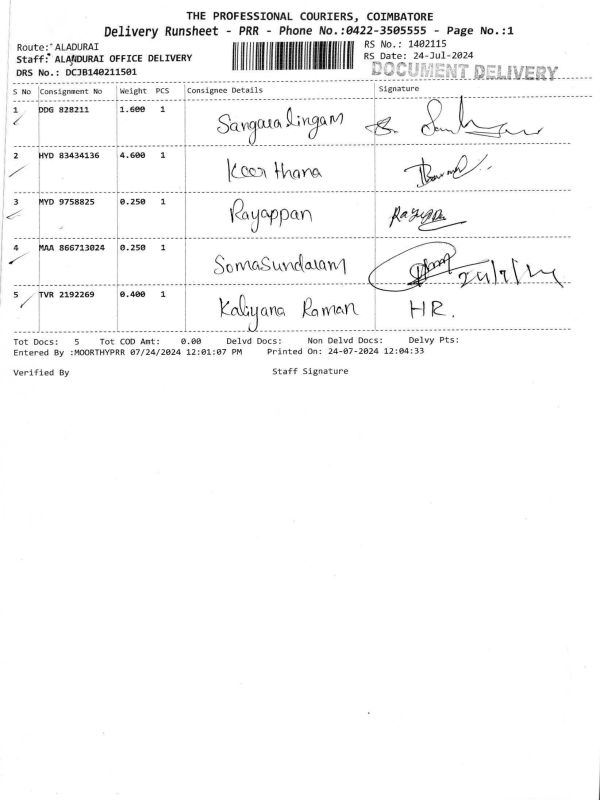 THE PROFESSIONAL COURIERS, COIMBATORE
Delivery Runsheet - PRR - Phone No.:0422-3505555 - Page No.:1
Route: ALADURAI
RS No.: 1402115
Staff: ALADURAI OFFICE DELIVERY
RS Date: 24-Jul-2024
DRS No.: DCJB140211501
DOCUMENT DELIVERY
S No Consignment No Weight PCS Consignee Details Signature
1 DDG 828211 1.600 1 Sangaralingam
2 HYD 83434136 4.600 1 Keerthana
3 MYD 9758825 0.250 1 Rayappan
4 MAA 866713024 0.250 1 Somasundaram 24/7/24
5 TVR 2192269 0.400 1 Kaliyana Raman HR.
Tot Docs: 5 Tot COD Amt: 0.00 Delvd Docs: Non Delvd Docs: Delvy Pts:
Entered By :MOORTHYPRR 07/24/2024 12:01:07 PM Printed On: 24-07-2024 12:04:33
Verified By Staff Signature